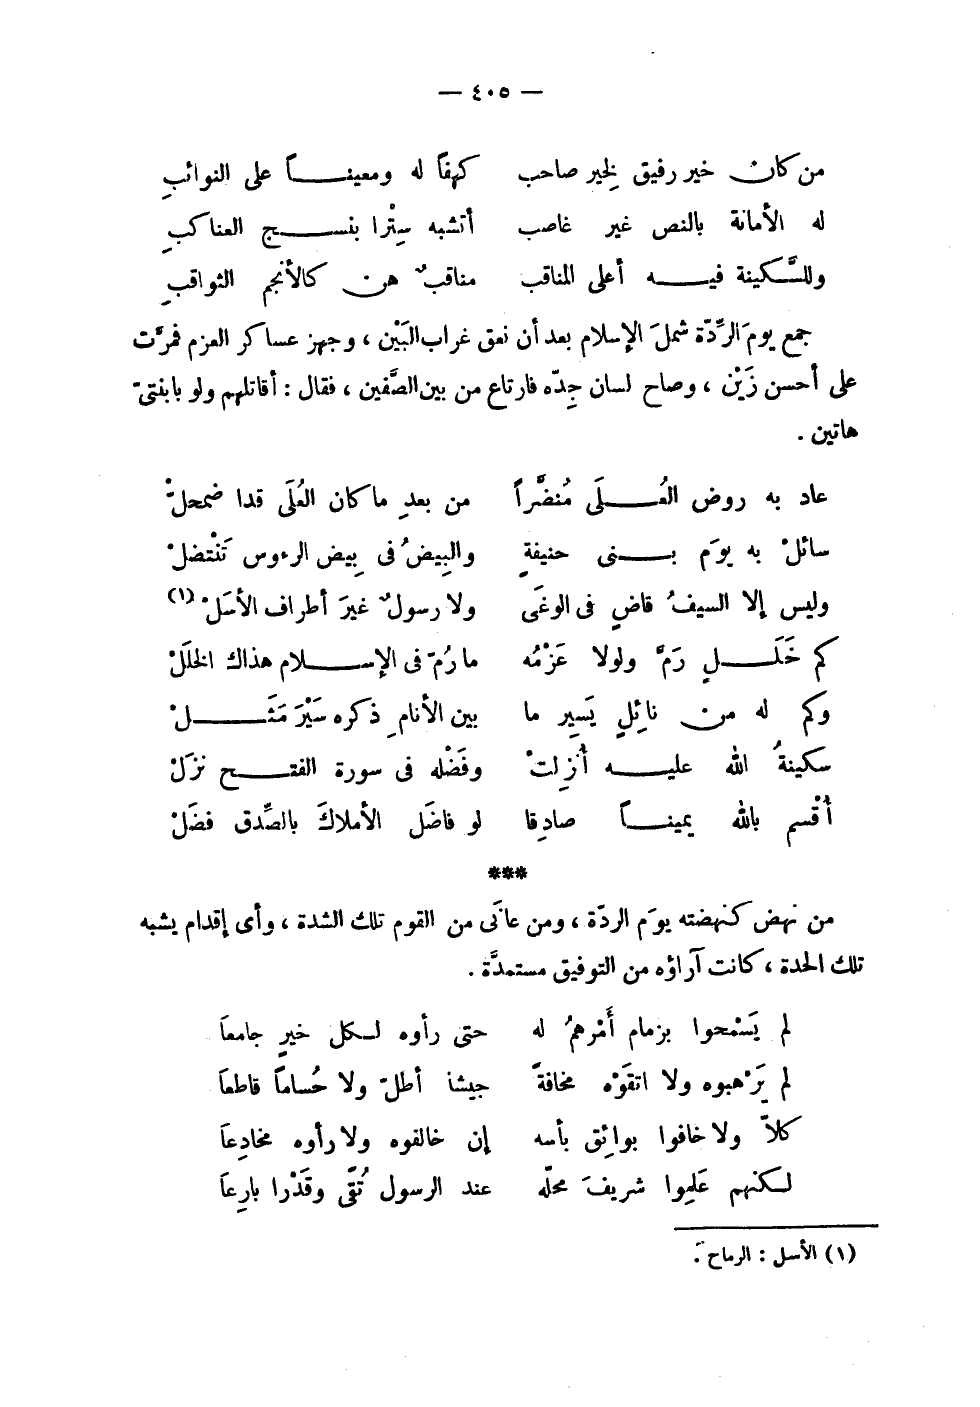 — ٤٠٥ —
من كان خير رفيق لخير صاحب كهفاً له ومعينــاً على النوائبِ
له الأمانة بالنص غير غاصب أتشبه سِتْرا بنســج العناكبِ
وللسَّكينة فيــه أعلى المناقب مناقبٌ هن كالأنجم الثواقبِ
جمع يومَ الرِّدّة شملَ الإسلام بعد أن نعق غراب البَيْن ، وجهز عساكر العزم فمرَّت
على أحسن زَيْن ، وصاح لسان جِدّه فارتاع من بين الصَّفين ، فقال : أقاتلهم ولو بابنتىّ
هاتين .
عاد به روض العُــلَى مُنضَّراً من بعدِ ما كان العُلَى قدا ضمحلّْ
سائلْ به يومَ بــنى حنيفةٍ والبِيضُ فى بِيض الرءوس تَنْتضلْ
وليس إلا السيفُ قاضٍ فى الوغَى ولا رسولٌ غيرَ أطراف الأسَلْ (١)
كم خَلَــلٍ رَمَّ ولولا عَزْمُه ما رُمّ فى الإســلام هذاك الخلَلْ
وكم له من نائِلٍ يَسِير ما بين الأنامِ ذكره سَيْرَ مَثَــلْ
سكينةُ الله عليــه أُنزِلتْ وفَضْله فى سورة الفتــح نزَلْ
أُقْسم بالله يمينــاً صادِقا لو فاضَل الأملاكَ بالصِّدق فضَلْ
***
من نهض كنهضته يومَ الردّة ، ومن عانَى من القوم تلك الشدة ، وأى إقدام يشبه
تلك الحدة ، كانت آراؤه من التوفيق مستمدَّة .
لم يَسْمحوا بزمام أَمْرهمُ له حتى رأوه لكل خيرٍ جامعَا
لم يَرْهبوه ولا اتقَوْه مخافةً جيشا أطلّ ولا حُساماً قاطعَا
كلاّ ولا خافوا بوائِق بأسه إن خالفوه ولا رأوه مخادِعَا
لكنهم عَلِموا شريفَ محلّه عند الرسول تُقًى وقَدْرا بارِعَا
(١) الأسل : الرماح .